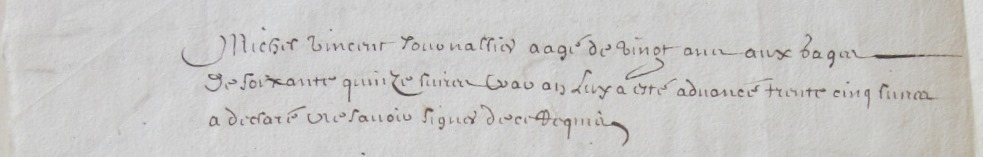 Michel Vincent Journallier aagé de vingt ans aux gages
De soixante quinze livres par an Luy a esté advancé trente cinq livres
a declaré ne savoir signer de ce requis